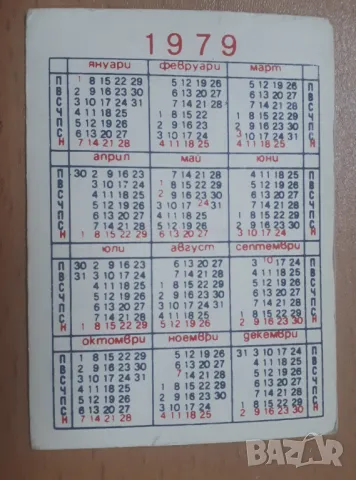 1979
януари февруари март
П 1 8 15 22 29 5 12 19 26 5 12 19 26 П
В 2 9 16 23 30 6 13 20 27 6 13 20 27 В
С 3 10 17 24 31 7 14 21 28 7 14 21 28 С
Ч 4 11 18 25 1 8 15 22 1 8 15 22 29 Ч
П 5 12 19 26 2 9 16 23 2 9 16 23 30 П
С 6 13 20 27 3 10 17 24 3 10 17 24 31 С
Н 7 14 21 28 4 11 18 25 4 11 18 25 Н
април май юни
П 30 2 9 16 23 7 14 21 28 4 11 18 25 П
В 3 10 17 24 1 8 15 22 29 5 12 19 26 В
С 4 11 18 25 2 9 16 23 30 6 13 20 27 С
Ч 5 12 19 26 3 10 17 24 31 7 14 21 28 Ч
П 6 13 20 27 4 11 18 25 1 8 15 22 29 П
С 7 14 21 28 5 12 19 26 2 9 16 23 30 С
Н 1 8 15 22 29 6 13 20 27 3 10 17 24 Н
юли август септември
П 30 2 9 16 23 6 13 20 27 3 10 17 24 П
В 31 3 10 17 24 7 14 21 28 4 11 18 25 В
С 4 11 18 25 1 8 15 22 29 5 12 19 26 С
Ч 5 12 19 26 2 9 16 23 30 6 13 20 27 Ч
П 6 13 20 27 3 10 17 24 31 7 14 21 28 П
С 7 14 21 28 4 11 18 25 1 8 15 22 29 С
Н 1 8 15 22 29 5 12 19 26 2 9 16 23 30 Н
октомври ноември декември
П 1 8 15 22 29 5 12 19 26 31 3 10 17 24 П
В 2 9 16 23 30 6 13 20 27 4 11 18 25 В
С 3 10 17 24 31 7 14 21 28 5 12 19 26 С
Ч 4 11 18 25 1 8 15 22 29 6 13 20 27 Ч
П 5 12 19 26 2 9 16 23 30 7 14 21 28 П
С 6 13 20 27 3 10 17 24 1 8 15 22 29 С
Н 7 14 21 28 4 11 18 25 2 9 16 23 30 Н
BAZAR